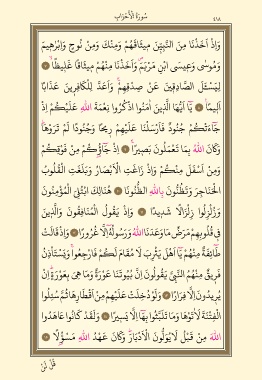 سُورَةُ الْأَحْزَابِ
٤١٨
وَإِذْ أَخَذْنَا مِنَ النَّبِيِّينَ مِيثَاقَهُمْ وَمِنْكَ وَمِنْ نُوحٍ وَإِبْرٰهِيمَ
وَمُوسٰى وَعِيسَى ابْنِ مَرْيَمَ وَأَخَذْنَا مِنْهُمْ مِيثَاقًا غَلِيظًا ٧
لِيَسْـَٔلَ الصَّادِقِينَ عَنْ صِدْقِهِمْ وَأَعَدَّ لِلْكَافِرِينَ عَذَابًا
أَلِيمًا ٨ يَا أَيُّهَا الَّذِينَ اٰمَنُوا اذْكُرُوا نِعْمَةَ اللهِ عَلَيْكُمْ إِذْ
جَاءَتْكُمْ جُنُودٌ فَأَرْسَلْنَا عَلَيْهِمْ رِيحًا وَجُنُودًا لَمْ تَرَوْهَا
وَكَانَ اللهُ بِمَا تَعْمَلُونَ بَصِيرًا ٩ إِذْ جَاؤُكُمْ مِنْ فَوْقِكُمْ
وَمِنْ أَسْفَلَ مِنْكُمْ وَإِذْ زَاغَتِ الْأَبْصَارُ وَبَلَغَتِ الْقُلُوبُ
الْحَنَاجِرَ وَتَظُنُّونَ بِاللهِ الظُّنُونَا ١٠ هُنَالِكَ ابْتُلِيَ الْمُؤْمِنُونَ
وَزُلْزِلُوا زِلْزَالًا شَدِيدًا ١١ وَإِذْ يَقُولُ الْمُنَافِقُونَ وَالَّذِينَ
فِي قُلُوبِهِمْ مَرَضٌ مَا وَعَدَنَا اللهُ وَرَسُولُهُ إِلَّا غُرُورًا ١٢ وَإِذْ قَالَتْ
طَائِفَةٌ مِنْهُمْ يَا أَهْلَ يَثْرِبَ لَا مُقَامَ لَكُمْ فَارْجِعُوا وَيَسْتَأْذِنُ
فَرِيقٌ مِنْهُمُ النَّبِيَّ يَقُولُونَ إِنَّ بُيُوتَنَا عَوْرَةٌ وَمَا هِيَ بِعَوْرَةٍ إِنْ
يُرِيدُونَ إِلَّا فِرَارًا ١٣ وَلَوْ دُخِلَتْ عَلَيْهِمْ مِنْ أَقْطَارِهَا ثُمَّ سُئِلُوا
الْفِتْنَةَ لَاٰتَوْهَا وَمَا تَلَبَّثُوا بِهَا إِلَّا يَسِيرًا ١٤ وَلَقَدْ كَانُوا عَاهَدُوا
اللهَ مِنْ قَبْلُ لَا يُوَلُّونَ الْأَدْبَارَ وَكَانَ عَهْدُ اللهِ مَسْؤُلًا ١٥
قُلْ لَنْ